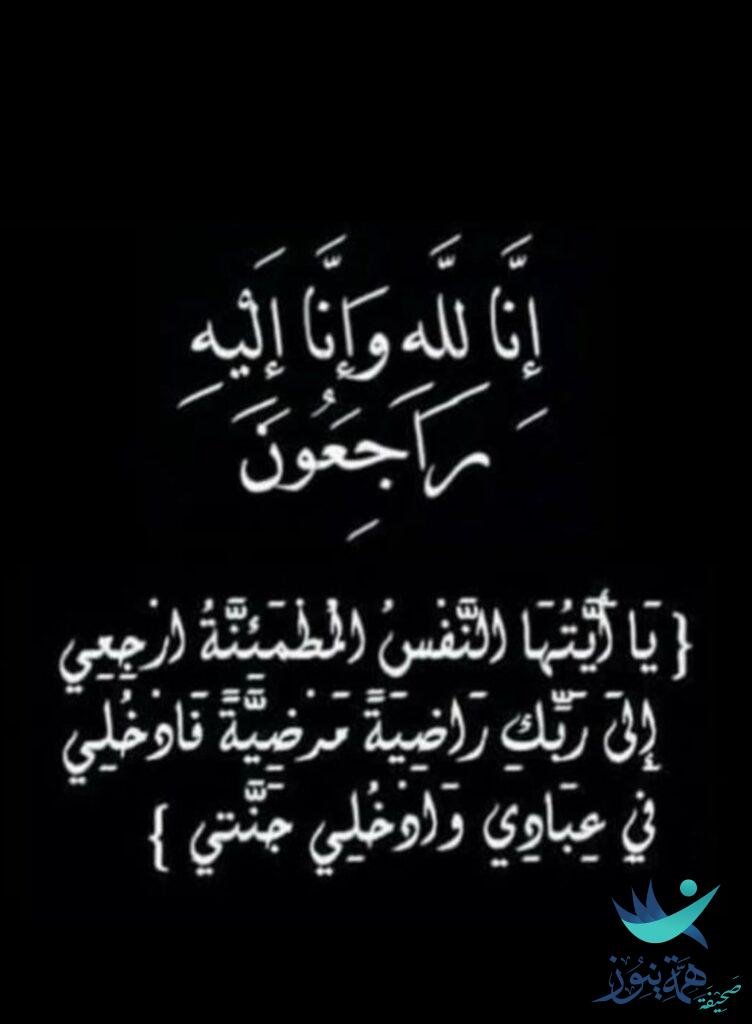 إِنَّا لِلَّهِ وَإِنَّا إِلَيْهِ
رَاجِعُونَ
{ يَا أَيَّتُهَا النَّفْسُ الْمُطْمَئِنَّةُ ارْجِعِي
إِلَىٰ رَبِّكِ رَاضِيَةً مَرْضِيَّةً فَادْخُلِي
فِي عِبَادِي وَادْخُلِي جَنَّتِي }
صَحِيفَة هِمَّة نِيُوز